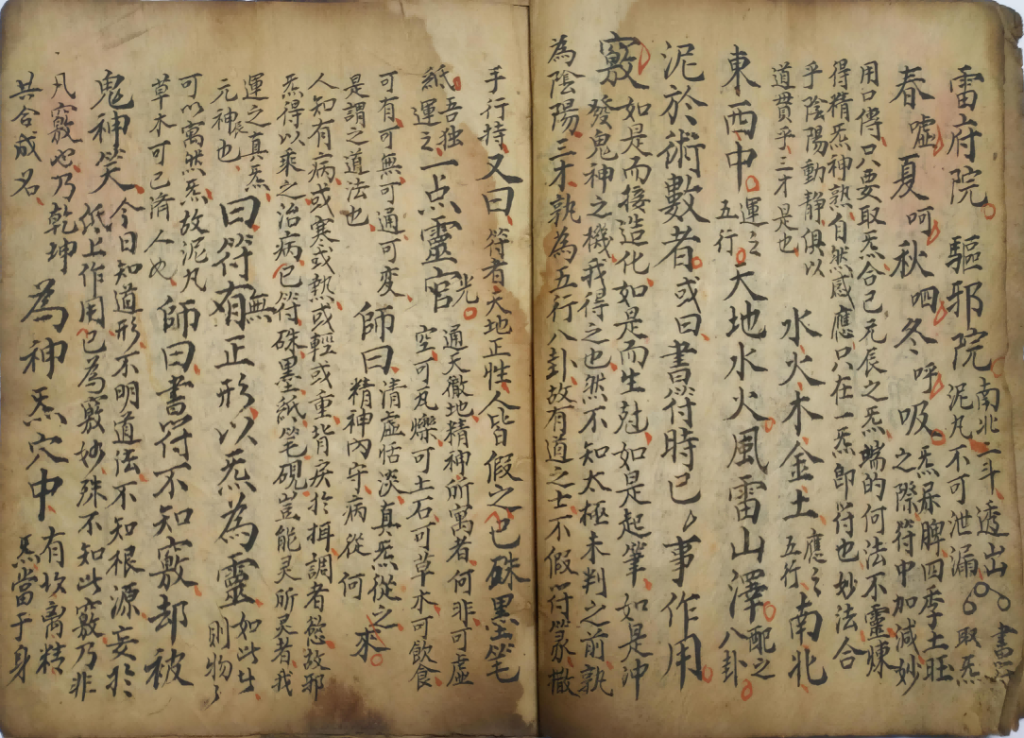 雷府院 驅邪院
南北二斗透出
泥丸不可泄漏 取炁
書符
春噓夏呵秋呬冬呼吸
炁屎脾四季土旺
之際符中加減妙
用口傳只要取炁合己元辰之炁端的何法不靈煉
得精炁神熟自然感應只在一炁即符也妙法合
乎陰陽動静俱以
道貫乎三才是也
水火木金土 應之五行 南北
東西中 運之五行 天地水火風雷山澤 配之八卦
泥於術數者或曰書符時已事作用
竅
如是而接造化如是而生尅如是起筆如是冲
發鬼神之機我得之也然不知太極未判之前孰
為陰陽三才孰為五行八卦故有道之士不假符篆撒
手行持 又曰 符者天地正性人皆假之已硃墨笔
紙吾独運之 一点靈官光
通天徹地精神所寓者何非可虛
空可瓦爍可土石可草木可飲食
可有可無可通可変
是謂之道法也
師曰
清虛恬淡真炁從之
精神內守病從何
來
人知有病或寒或熱或輕或重皆戾於揖調者愆故邪
炁得以乘之治病已符硃墨紙笔硯豈能灵所灵者我
運之真炁
元神長也
曰符有無正形以炁為靈
如此出
則物了
可以寓然炁故泥丸
草木可已濟人也
師曰書符不知竅却被
鬼神笑
今日知道形不明道法不知根源妄於
紙上作用已為竅妙殊不知此竅乃非
凡竅也乃乾坤
共合成名
為神炁穴中
有坎离精
炁當于身